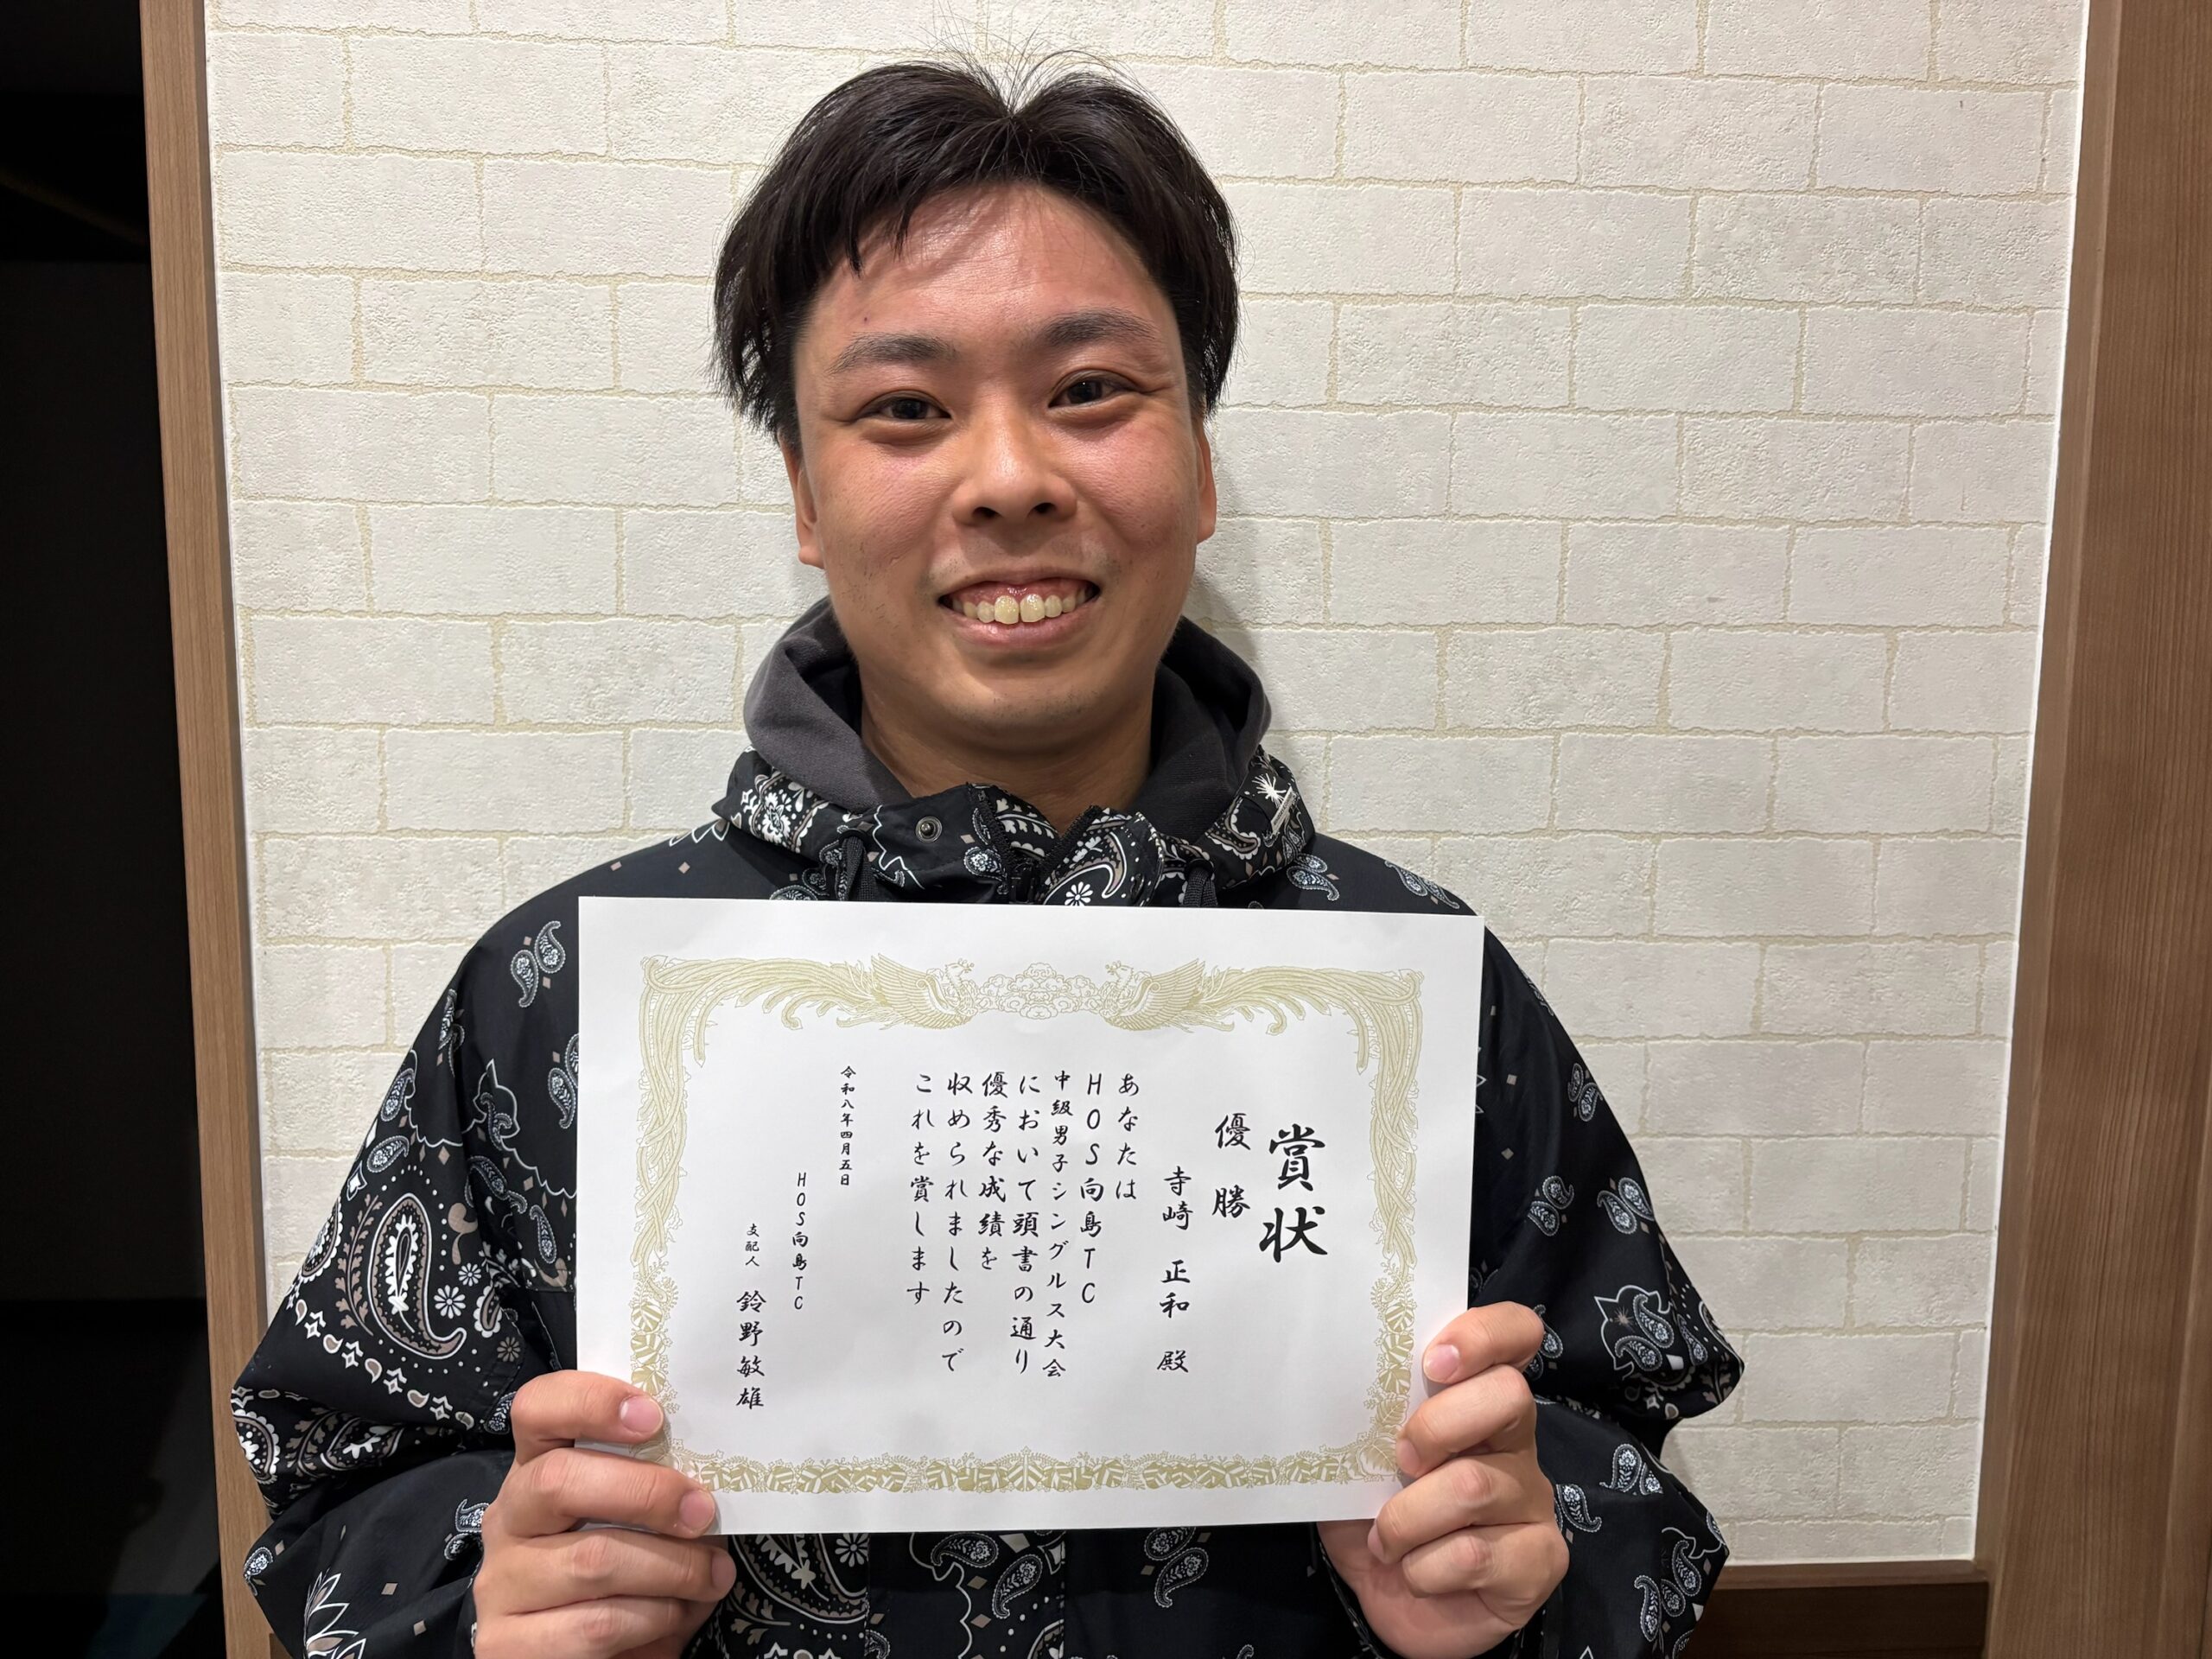 賞状
優勝
寺崎 正和 殿
あなたは
HOS向島TC
中級男子シングルス大会
において頭書の通り
優秀な成績を
収められましたので
これを賞します
令和八年四月五日
HOS向島TC
支配人 鈴野敏雄